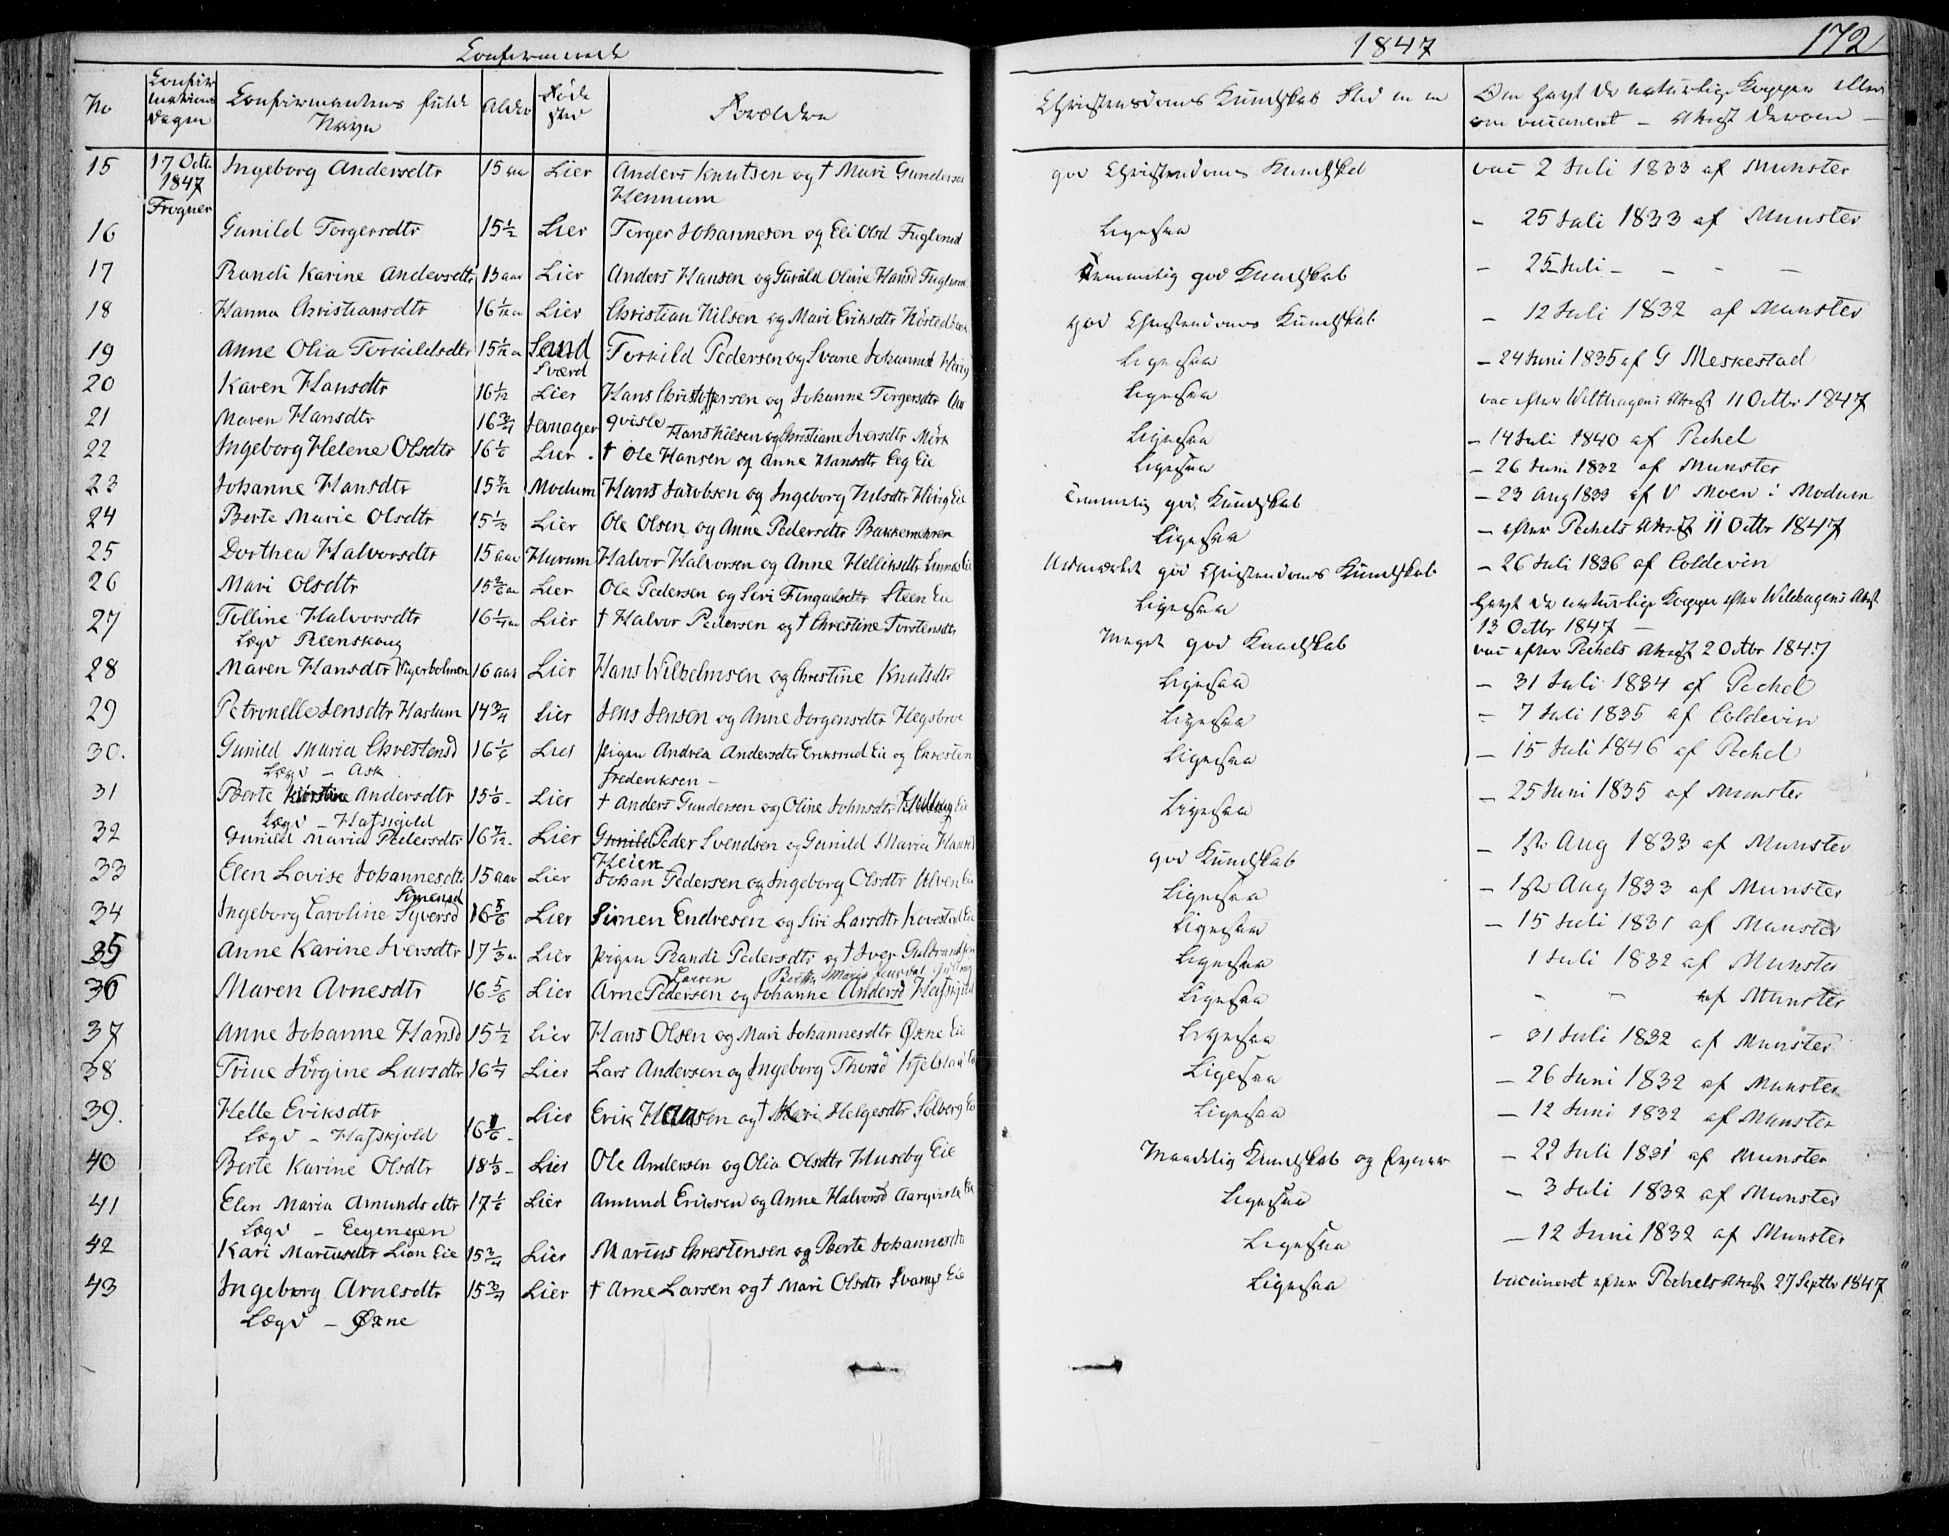 Confirmerede
1847
172
No
Confirmations Dagen
Confirmantens fulde Navn
Alder
Føde sted
Forældre
Christendoms Kundskab Flid m m
Om havt de naturlige Kopper eller om vaccineret - Attest derom -
15 17 Octr 1847 Frogner Ingeborg Andersdtr 15 aar Lier Anders Knutsen og † Mari Gundersen Hennum god Christendoms Kundskab vac 2 Juli 1833 af Munster
16 Gunild Torgersdtr 15½ Lier Torger Johannesen og Eli Olsd Fuglerud Ligesaa - 25 Juli 1833 af Munster
17 Randi Karine Andersdtr 15 aar Lier Anders Hansen og Gunild Oline Hansd Temmelig god Kundskab - 25 Juli - - - -
18 Hanna Christiansdtr 16 Lier Christian Nilsen og Mari Eriksdtr god Christendoms Kundskab - 12 Juli 1832 af Munster
19 Anne Olia Torkildsdtr 15 Sand Sværd Torkild Pedersen og Svane Johannesd Ligesaa - 24 Juni 1835 af G Meskestad
20 Karen Hansdtr 16½ Lier Hans Christoffersen og Johanne Torgersdtr Aar Ligesaa vac efter Wilthagens Attest 11 Octbr 1847
21 Maren Hansdtr 16¾ Jevnager qvisle Hans Nilsen og Christiane Iversdtr Mørk Ligesaa - 14 Juli 1840 af Pechel
22 Ingeborg Helene Olsdtr 16 Lier † Ole Hansen og Anne Hansdtr Eeg Eie Ligesaa - 26 Juni 1832 af Munster
23 Johanne Hansdtr 15 Modum Hans Jacobsen og Ingeborg Eie Temmelig god Kundskab - 23 Aug 1833 af V Moen i Modum
24 Berte Marie Olsdtr 15⅓ Lier Ole Olsen og Anne Pedersdtr Ligesaa - efter Pechels Attest 11 Octbr 1847
25 Dorthea Halvorsdtr 15 aar Hurum Halvor Halvorsen og Anne Helliksdtr Udmærket god Christendoms Kundskab - 26 Juli 1836 af Coldevin
26 Mari Olsdtr 15 Lier Ole Pedersen og Siri Steen Eie Ligesaa havt de naturlige Kopper efter Wilthagens Attest 13 Octbr 1847 -
27 Tolline Halvorsdtr 16 Lier † Halvor Pedersen og † Christine Torstensdtr Meget god Kundskab vac efter Pechels Attest 2 Octbr 1847
Lægd
28 Maren Hansdtr 16 aar Lier Hans Wilhelmsen og Christine Knutsdtr Ligesaa - 31 Juli 1834 af Pechel
29 Petronelle Jensdtr Haslum 14¾ Lier Jens Jensen og Anne Jorgensdtr Hegsbroe Ligesaa - 7 Juli 1835 af Coldevin
30. Gunild Maria Chrestensd 16 Lier Pigen Andrea Andersdtr Eriksrud Eie og Chresten Frederiksen - Ligesaa - 15 Juli 1846 af Pechel
Lægd - Ask
31 Berte Andersdtr 15 Lier † Anders Gundersen og Oline Johnsdtr Eie Ligesaa - 25 Juni 1835 af Munster
Lægd - Hafskjold
32 Gunild Maria Pedersdtr 16 Lier Gunild Peder Svendsen og Gunild Maria Hansd Heien god Kundskab - 1ste Aug 1833 af Munster
33 Elen Lovise Johannesdtr 15 aar Lier Johan Pedersen og Ingeborg Olsdtr Ulven Eie Ligesaa - 1ste Aug 1833 af Munster
34 Ingeborg Caroline Syversd Simensd 16 5/6 Lier Simen Endresen og Siri Larsdtr Kovestad Eie Ligesaa - 15 Juli 1831 af Munster
35 Anne Karine Iversdtr 17⅓ Lier Pigen Randi Pedersdtr og † Iver Guldbrandsen Ligesaa 1 Juli 1832 af Munster
36 Maren Arnesdtr 16 5/6 Lier Arne Pedersen Larsen og Johanne Andersd Hafskjold Ligesaa - - af Munster
37 Anne Johanne Hansd 15½ Lier Hans Olsen og Mari Johannesdtr Øxne Eie Ligesaa - 31 Juli 1832 af Munster
38 Trine Jørgine Larsdtr 16 Lier Lars Andersen og Ingeborg Thorsd Ligesaa - 26 Juni 1832 af Munster
39. Helle Eriksdtr 16 Lier Erik Hansen og † Kari Helgesdtr Solberg Eie Ligesaa - 12 Juni 1832 af Munster
Lægd - Hafskjold
40 Berte Karine Olsdtr 18⅓ Lier Ole Andersen og Olia Olsdtr Huseby Eie Maadelig Kundskab og Evner - 22 Juli 1831 af Munster
41 Elen Maria Amundsdtr 17 Lier Amund Eriksen og Anne Halvorsd Aarqvisle Eie Ligesaa - 3 Juli 1832 af Munster
Lægd - Eegengen
42 Kari Mariusdtr Lian Eie 15 Lier Marius Chrestensen og Berte Johannesdtr Ligesaa - 12 Juni 1832 af Munster
43 Ingeborg Arnesdtr 15¾ Lier † Arne Larsen og † Mari Olsdtr Svangs Eie Ligesaa vaccineret efter Pechels Attest 27 Septbr 1847
Lægd - Øxne